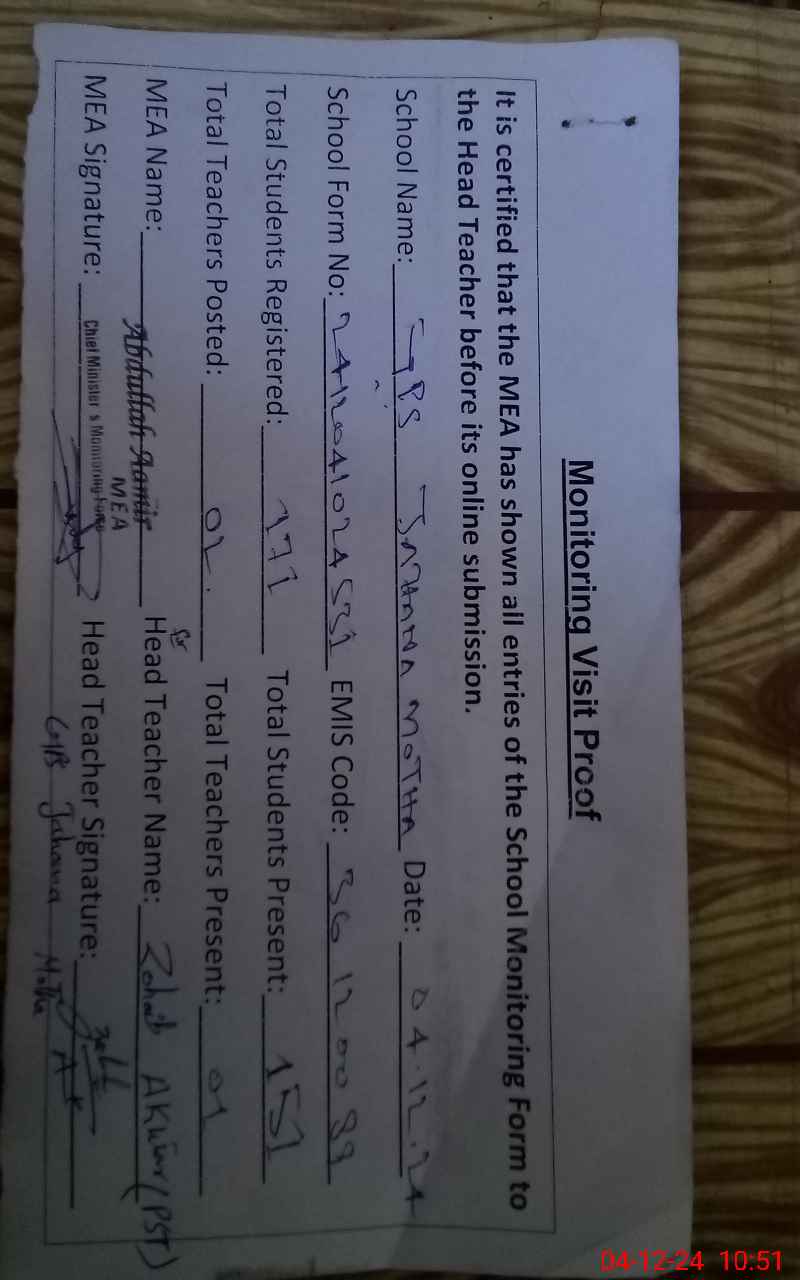 Monitoring Visit Proof
It is certified that the MEA has shown all entries of the School Monitoring Form to
the Head Teacher before its online submission.
School Name: GPS JAHANA MOTHA Date: 04.12.24
School Form No: 2412041024531 EMIS Code: 36120089
Total Students Registered: 171 Total Students Present: 151
Total Teachers Posted: 02. Total Teachers Present: 01
MEA Name: Abdullah Aamir for Head Teacher Name: Zohaib (PST)
MEA
Chief Minister's Monitoring Force
MEA Signature: Head Teacher Signature:
GPS Jahana Motha
04-12-24 10:51